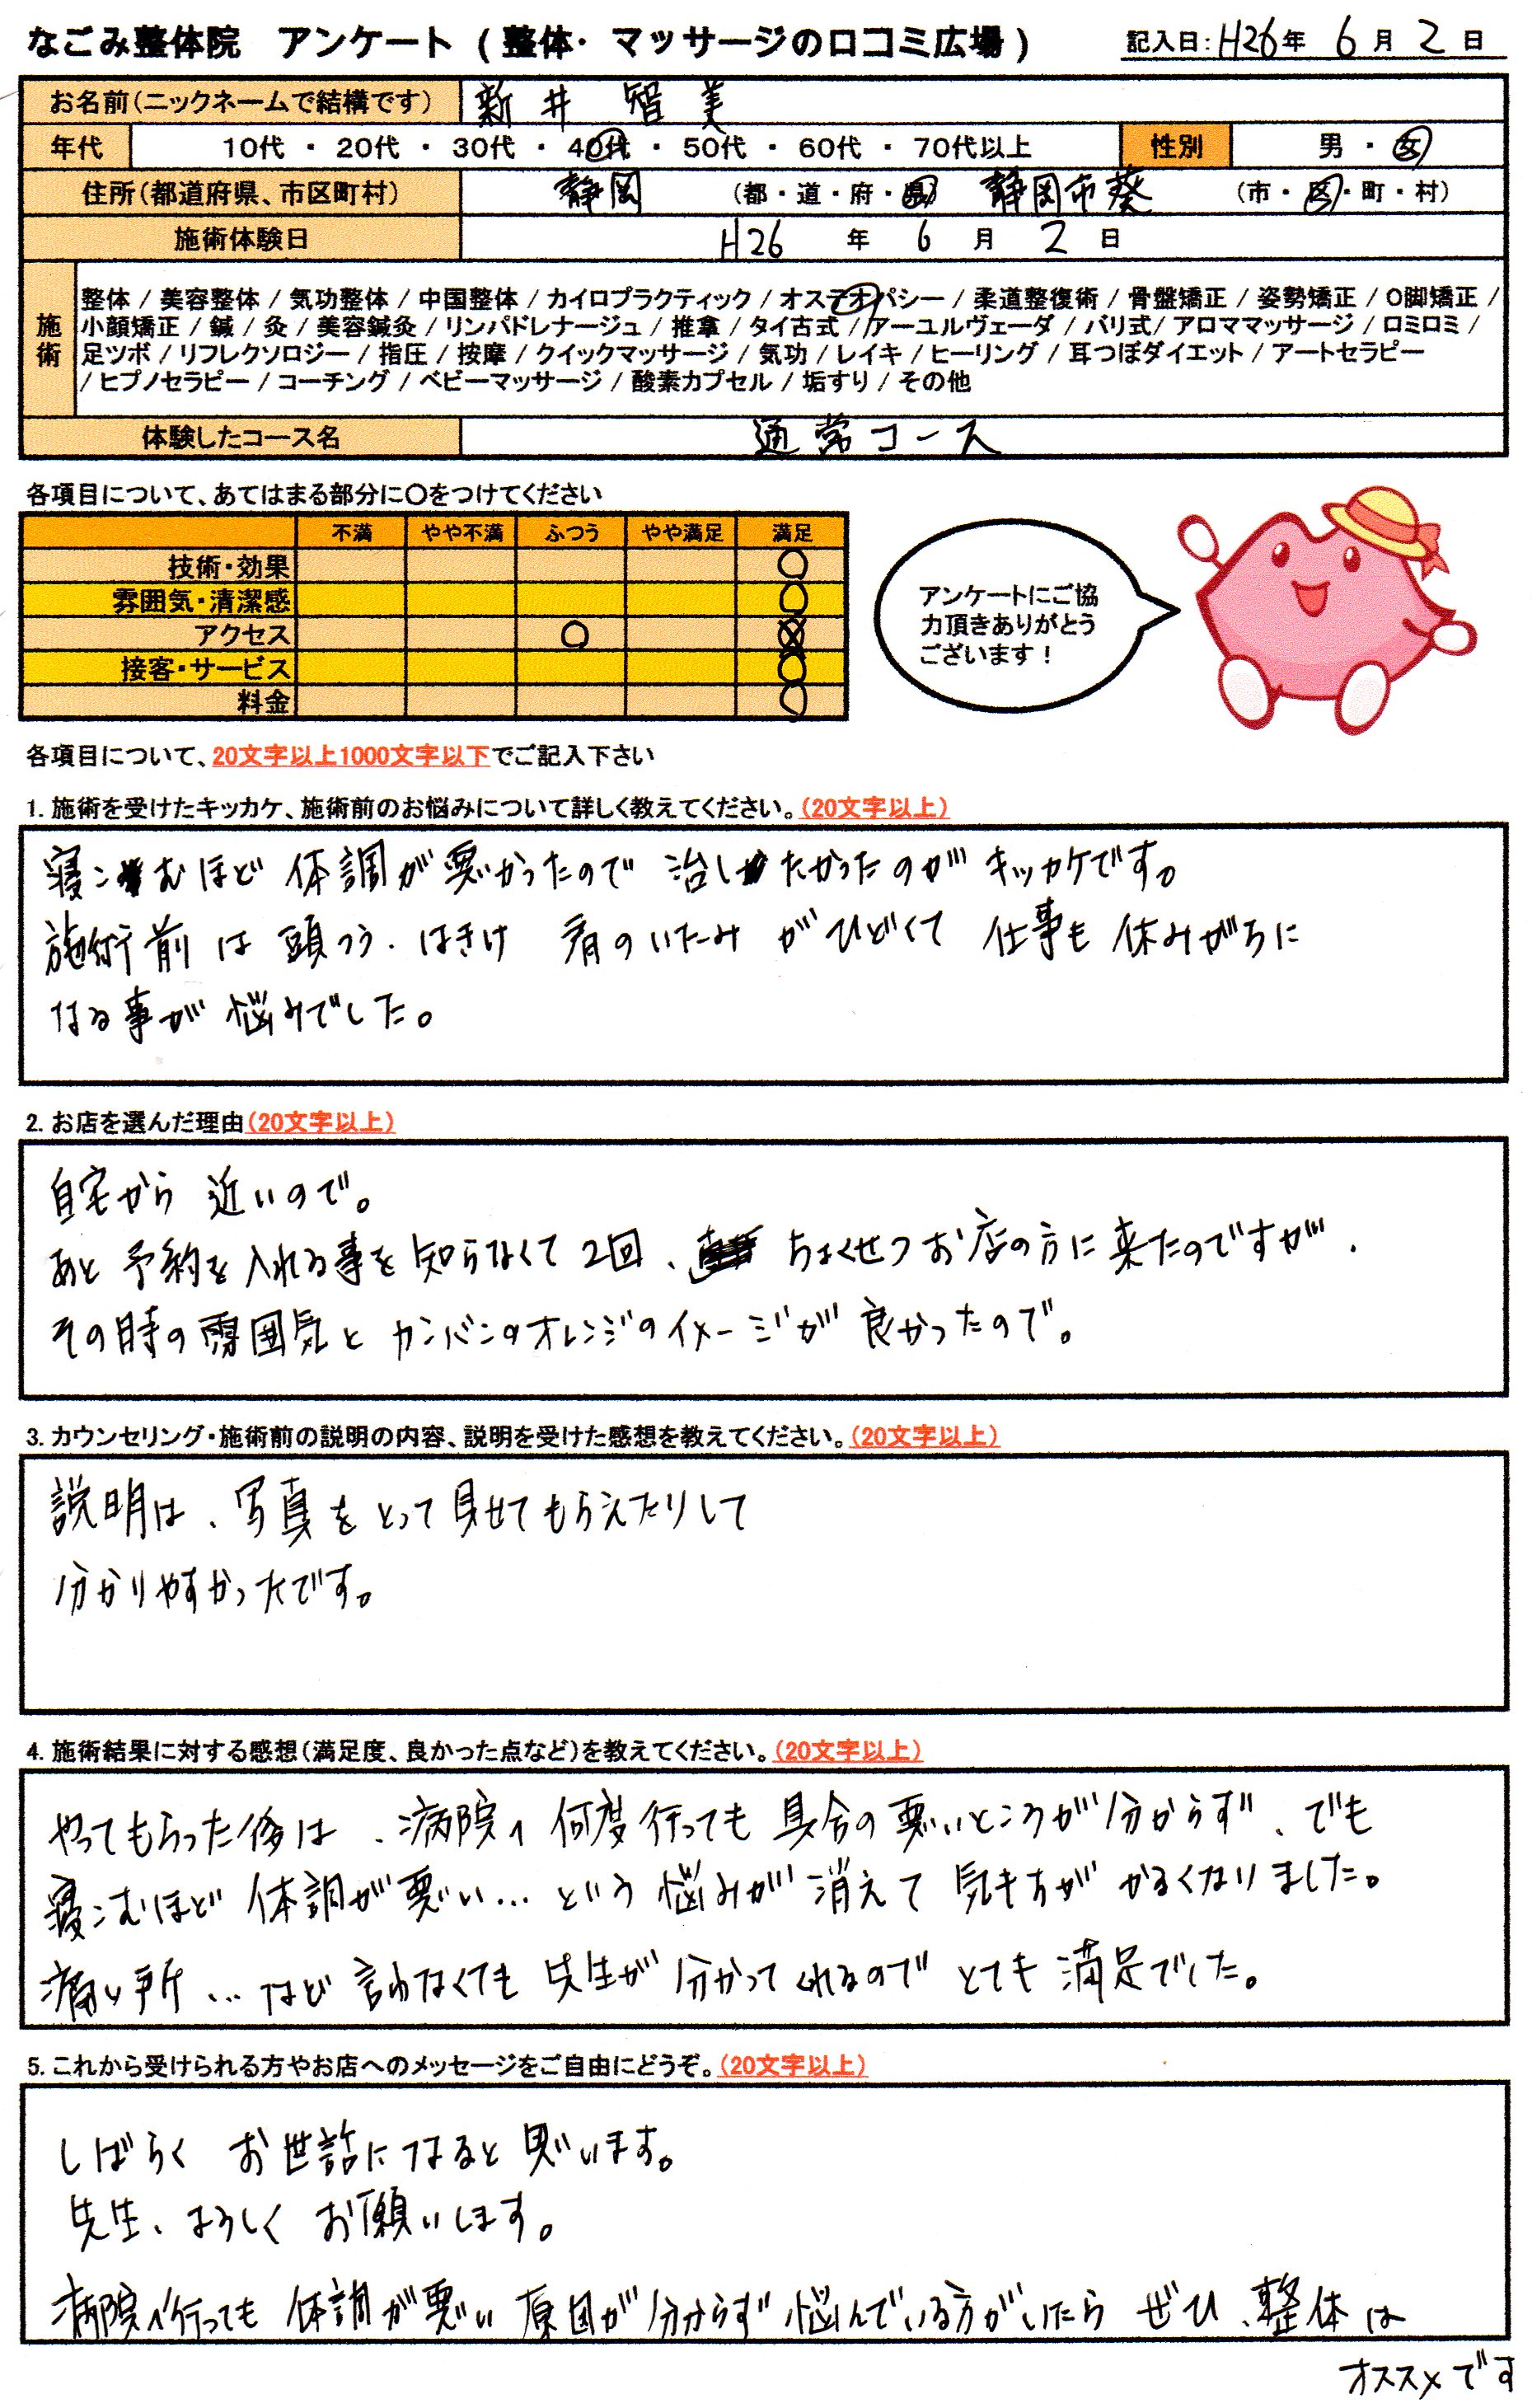 なごみ整体院 アンケート（整体・マッサージの口コミ広場） 記入日：H26年 6月 2日
お名前（ニックネームで結構です） 新井 智美
年代 10代 ・ 20代 ・ 30代 ・ 40代 ・ 50代 ・ 60代 ・ 70代以上 性別 男 ・ 女
住所（都道府県、市区町村） 静岡 （都・道・府・県） 静岡市葵 （市・区・町・村）
施術体験日 H26 年 6 月 2 日
施術
整体 / 美容整体 / 気功整体 / 中国整体 / カイロプラクティック / オステオパシー / 柔道整復術 / 骨盤矯正 / 姿勢矯正 / O脚矯正 /
小顔矯正 / 鍼 / 灸 / 美容鍼灸 / リンパドレナージュ / 推拿 / タイ古式 / アーユルヴェーダ / バリ式 / アロママッサージ / ロミロミ /
足ツボ / リフレクソロジー / 指圧 / 按摩 / クイックマッサージ / 気功 / レイキ / ヒーリング / 耳つぼダイエット / アートセラピー
/ ヒプノセラピー / コーチング / ベビーマッサージ / 酸素カプセル / 垢すり / その他
体験したコース名 通常コース
各項目について、あてはまる部分に○をつけてください
不満 やや不満 ふつう やや満足 満足
技術・効果 ○
雰囲気・清潔感 ○
アクセス ○
接客・サービス ○
料金 ○
アンケートにご協
力頂きありがとう
ございます！
各項目について、20文字以上1000文字以下でご記入下さい
1. 施術を受けたキッカケ、施術前のお悩みについて詳しく教えてください。（20文字以上）
寝こむほど 体調が悪かったので 治したかったのが キッカケです。
施術前は 頭つう、はきけ 肩のいたみ がひどくて 仕事も 休みがちに
なる事が 悩みでした。
2. お店を選んだ理由（20文字以上）
自宅から 近いので。
あと 予約を入れる事を 知らなくて 2回、ちょくせつ お店の方に 来たのですが、
その時の雰囲気と カンバンのオレンジのイメージが 良かったので。
3. カウンセリング・施術前の説明の内容、説明を受けた感想を教えてください。（20文字以上）
説明は、写真をとって見せてもらえたりして
分かりやすかったです。
4. 施術結果に対する感想（満足度、良かった点など）を教えてください。（20文字以上）
やってもらった後は、病院へ 何度行っても 具合の悪いところが分からず、でも
寝こむほど 体調が悪い…という 悩みが 消えて 気もちが かるくなりました。
痛い所…など 言わなくても 先生が 分かってくれるので とても 満足でした。
5. これから受けられる方やお店へのメッセージをご自由にどうぞ。（20文字以上）
しばらく お世話になると思います。
先生、よろしく お願いします。
病院へ行っても 体調が悪い 原因が分からず 悩んでいる方がいたら ぜひ、整体は
オススメです